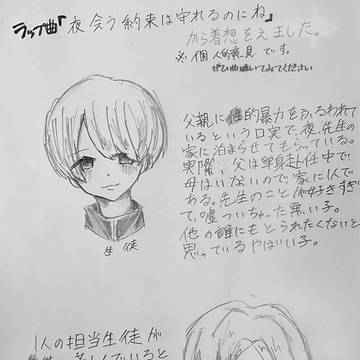 ラップ曲『夜会う約束は守れるのにね』
から着想をえました。
※個人的意見です。
ぜひ曲聴いてみてください
父親に性的暴力をふるわれて
いるという口実で、夜、先生の
家に泊まらせてもらっている。
実際、父は単身赴任中で、
母はいないので、家に1人で
ある。先生のことが好きすぎ
て、嘘ついちゃった悪い子。
他の誰にもとられたくないと
思っているやばい子。
生徒
1人の担当生徒が